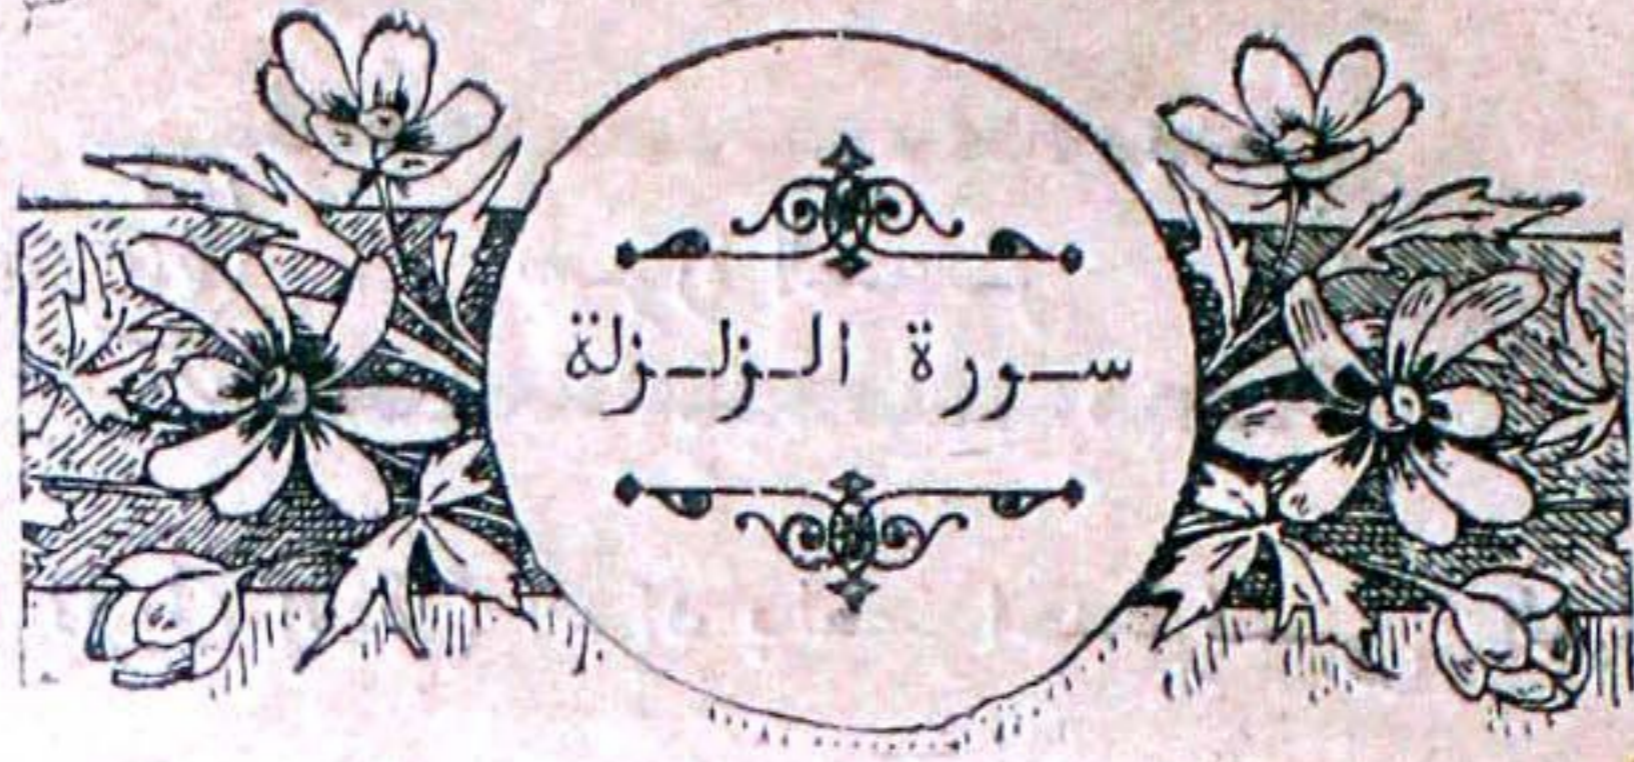 سورة الزلزلة